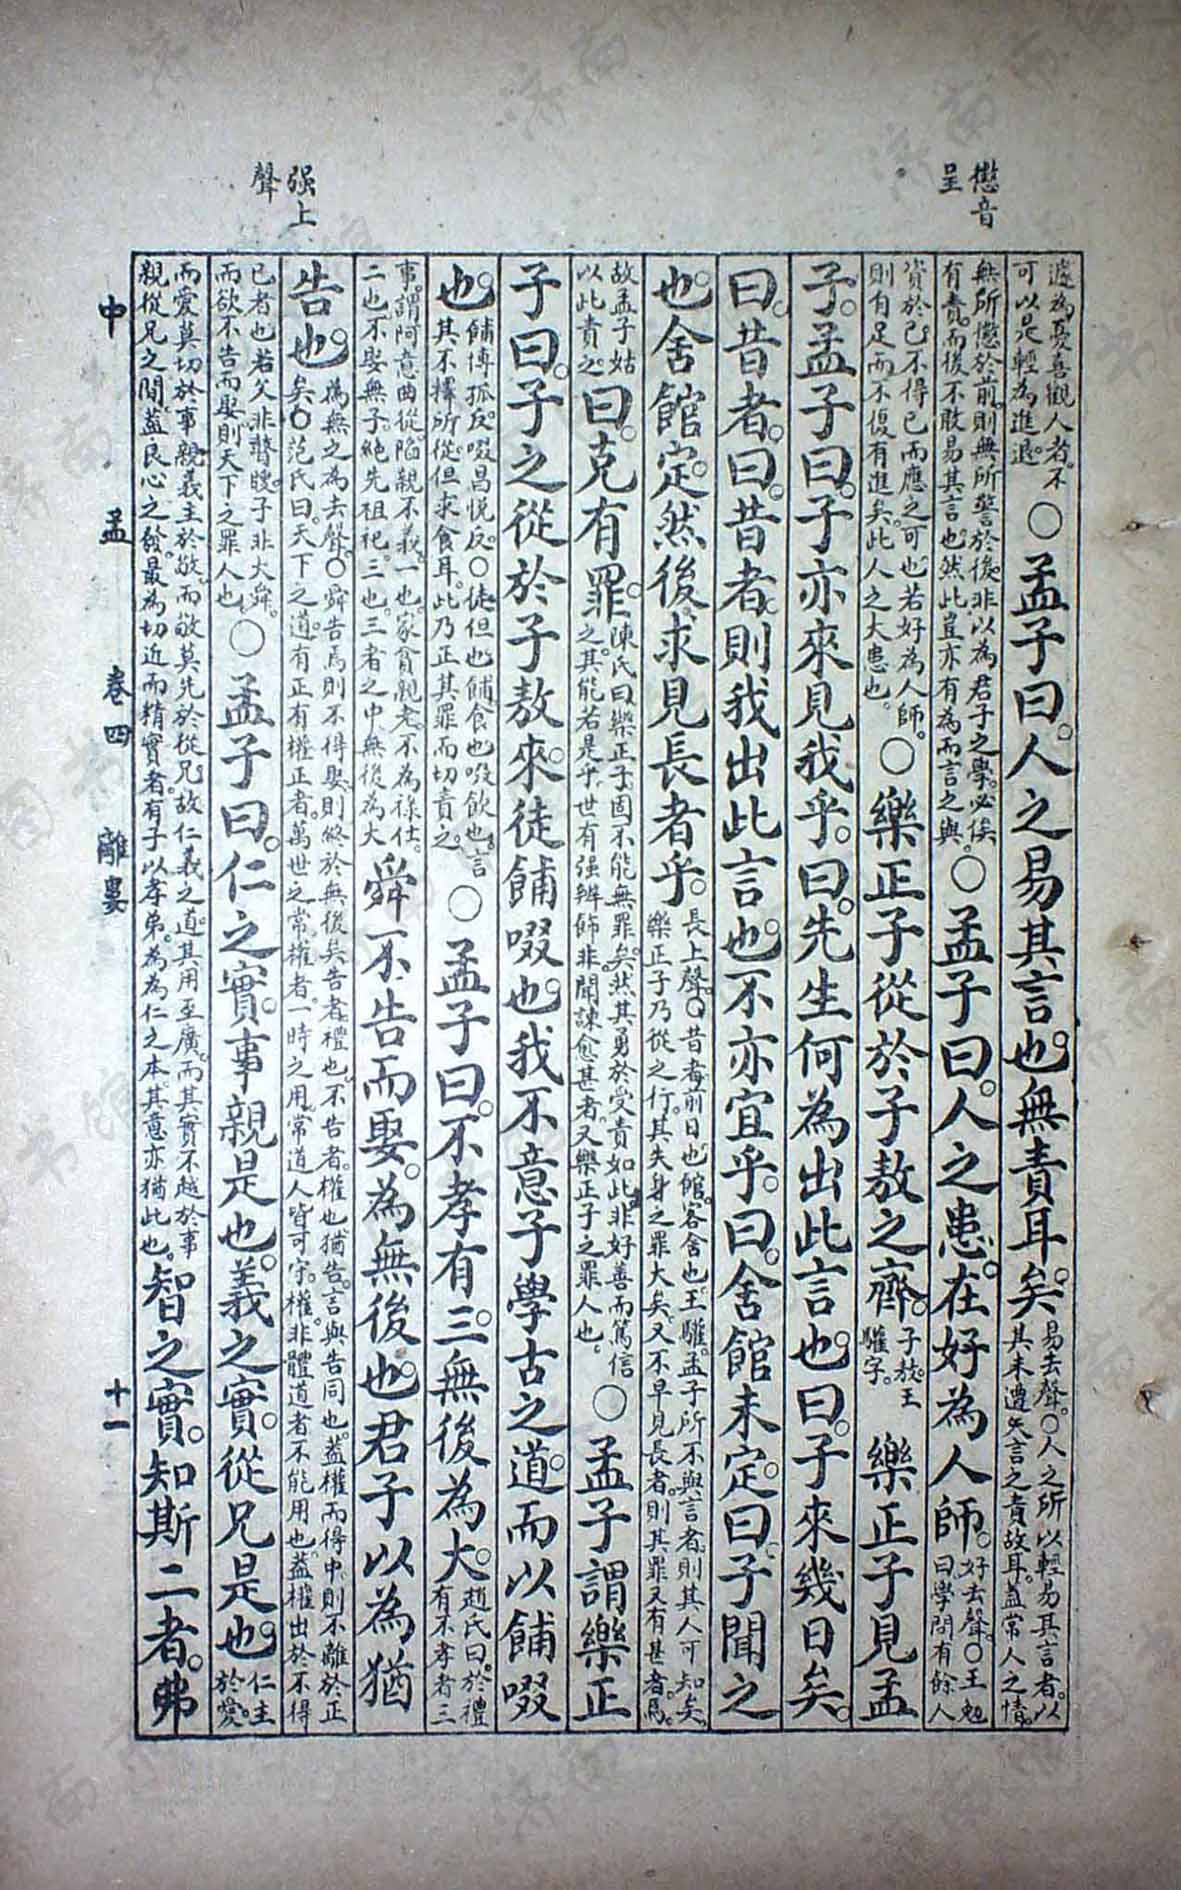 懲音
呈
强上
聲
遽為憂喜觀人者。不
可以是輕為進退。
○孟子曰。人之易其言也。無責耳矣。
易去聲。○人之所以輕易其言者。以
其未遭失言之責故耳。蓋常人之情。
無所懲於前。則無所警於後。非以為君子之學。必俟
有責。而後不敢易其言也。然此豈亦有為而言之與。
○孟子曰。人之患。在好為人師。
好去聲。○王勉
曰學問有餘人
資於己。不得已而應之可也。若好為人師。
則有足而不復有進矣。此人之大患也。
○樂正子從於子敖之齊。
子敖。王
驩字。
樂正子見孟
子。孟子曰。子亦來見我乎。曰。先生何為出此言也。曰。子來幾日矣。
曰。昔者。曰。昔者。則我出此言也。不亦宜乎。曰。舍館未定。曰。子聞之
也。舍館定。然後。求見長者乎。
長上聲。○昔者。前日也。館。客舍也。王驩。孟子所不與言者。則其人可知矣。
樂正子乃從之行。其失身之罪大矣。又不早見長者。則其罪又有甚者焉。
故孟子姑
以此責之。
曰。克有罪。
陳氏曰。樂正子。固不能無罪矣。然其勇於受責如此。非好善而篤信
之。其能若是乎。世有强辨飾非聞諫愈甚者。又樂正子之罪人也。
○孟子謂樂正
子曰。子之從於子敖來。徒餔啜也。我不意子學古之道。而以餔啜
也。
餔博孤反。啜昌悅反。○徒但也。餔食也。啜飲也。言
其不擇所從但求食耳。此乃正其罪而切責之。
○孟子曰。不孝有三。無後為大。
趙氏曰。於禮
有不孝者三
事。謂阿意曲從。陷親不義。一也。家貧親老。不為祿仕。
二也。不娶無子。絶先祖祀。三也。三者之中。無後為大
舜不告而娶。為無後也。君子以為猶
告也。
為無之為去聲。○舜告焉則不得娶。則終於無後矣。告者。禮也。不告者。權也。猶告。言與告同也。蓋權而得中。則不離於正
矣。○范氏曰。天下之道。有正有權。正者。萬世之常。權者。一時之用。常道人皆可守。權。非體道者不能用也。蓋權出於不得
已者也。若父非瞽瞍。子非大舜。
而欲不告而娶。則天下之罪人也。
○孟子曰。仁之實。事親是也。義之實。從兄是也。
仁主
於愛。
而愛莫切於事親。義主於敬。而敬莫先於從兄。故仁義之道。其用至廣。而其實不越於事
親從兄之間。蓋良心之發。最為切近而精實者。有子以孝弟。為為仁之本。其意亦猶此也。
智之實。知斯二者。弗
中 孟 卷四 離婁 十一